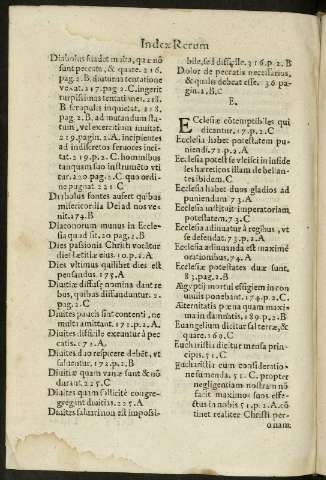 Index Rerum
Diabolus suadet multa, quæ nō
sunt peccata, & quare. 216.
pag. 2. B. diuturna tentatione
vexat. 217. pag 2. C. ingerit
turpissimas tentationes. 218.
B. scrupulis inquietat. 218.
pag. 2. B. ad mutandum sta-
tum, vel exercitium inuitat.
219. pagin. 2. A. incipientes
ad indiscretos feruores inci-
tat. 219. p. 2. C. hominibus
tanquam suo instrumēto vti
tur. 220 pag. 2. C. quo ordi-
ne pugnat 221 C
Diabolus fontes aufert quibus
misericordia Dei ad nos ve-
nit. 74. B
Diaconorum munus in Eccle-
sia quod sit. 20 pag. 2. B
Dies passionis Christi vocātur
dies lætitiæ eius. 10. p. 2. A
Dies vltimus quilibet dies est
pensandus. 175. A
Diuitiæ diffusæ nomina dant re
bus, quibus diffunduntur. 2.
pag. C
Diuites paucis sunt contenti, ne
multa amittant. 172. p. 2. A.
Diuites difficile exeunt à pec
catis. 172. A.
Diuites quo respicere debēt, vt
saluentur. 172. p. 2. B
Diuitiæ quam vanæ sunt & nō
durant. 225. C
Diuites quam sollicite congre-
gregant diuitias. 225. A
Diuites saluari non est impossi-
bile, sed difficile. 316. p. 2. B
Dolor de peccatis necessarius,
& qualis debeat esse. 36 pa-
gin. 2. B. C
E.
Ecclesiæ cōtemptibiles qui
dicantur. 17. p. 2. C
Ecclesia habet potestatem pu-
niendi. 72. p. 2. A
Ecclesia potest se vlcisci in infide
les hæreticos illam debellan-
tes ibidem. C
Ecclesia habet duos gladios ad
puniendum 73. A
Ecclesia instituit imperatoriam
potestatem. 73. C
Ecclesia adiuuatur à regibus, vt
se defendat. 73. p. 2. A
Ecclesia adiuuanda est maximè
orationibus. 74. A
Ecclesiæ potestates duæ sunt.
83. pag. 2. B
Ægyptij mortui effigiem in con
uiuijs ponebant. 174. p. 2. C.
Æternitas pœna quam maxi-
ma in damnatis, 189. p. 2. B
Euangelium dicitur sal terræ, &
quare. 160. C
Eucharistia dicitur mensa prin-
cipis. 51. C.
Eucharistia cum consideratio-
ne sumenda. 51. C. propter
negligentiam nostram nō
facit maximos suos effe-
ctus in nobis 51. p. 2. A. cō
tinet realiter Christi per-
onam: